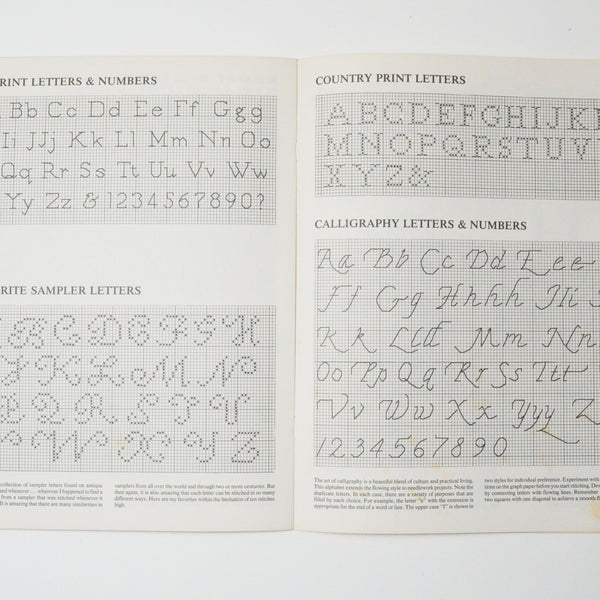 RINT LETTERS & NUMBERS
Bb Cc Dd Ee Ff Ggg
Ii JJj Kk Ll Mm Nn Oo
Qq Rr Ss Tt Uu Vv Ww
Yy Zz & 1234567890?
RITE SAMPLER LETTERS
B C D E F G H
J K L M N
P Q R S T U
W X Y Z
collection of sampler letters found on antique
and whenever . . . wherever I happened to find a
from a sampler that was stitched whenever it
It is amazing that there are many similarities in
samplers from all over the world and through two or more centuries. But
then again, it is also amazing that each letter can be stitched in so many
different ways. Here are my favorites within the limitation of ten stitches
high.
COUNTRY PRINT LETTERS
ABCDEFGHIJK
MNOPQRSTUV
XYZ&
CALLIGRAPHY LETTERS & NUMBERS
Aa Bb Cc Dd Eee
Ff Gg Hhhh Ii
Kk Llll Mm Nn
Oo Pp Qq Rr Ss Ttt
Vv Ww Xx Yyy Z
1234567890
The art of calligraphy is a beautiful blend of culture and practical living.
This alphabet extends the flowing style to needlework projects. Note the
duplicate letters. In each case, there are a variety of purposes that are
filled by each choice. For example, the letter "e" with the extension is
appropriate for the end of a word or line. The upper case "I" is shown in
two styles for individual preference. Experiment with
tions on the graph paper before you start stitching.
by connecting letters with flowing lines. Remember
two squares with one diagonal to achieve a smooth